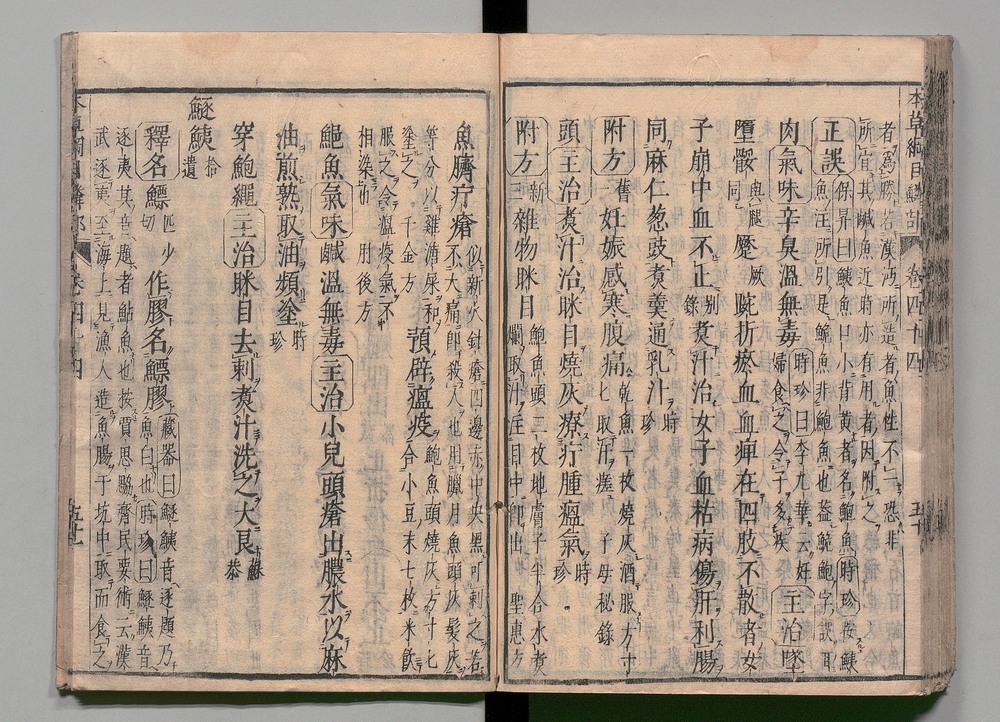 本草綱目鱗部 卷四十四 五十
者爲勝若漢沔所造者魚性不一恐非
所宜其鹹魚近時亦有用者因附之
正誤 保昇曰鮧魚口小背黄者名鮑魚時珍按鮧
魚注所引是鮠魚非鮑魚也蓋鮠鮑字誤耳
肉氣味辛臭溫無毒 時珍曰李九華云妊婦食之令子多疾 主治墜
墮骽與腿同蹷厥踠折瘀血血痺在四肢不散者女
子崩中血不止別錄煑汁治女子血枯病傷肝利腸
同麻仁葱豉煑羹通乳汁時珍
附方 舊一 妊娠感寒腹痛 乾魚一枚燒灰酒服方寸匕取汗瘥 子母秘錄
頭主治煑汁治眯目燒灰療疔腫瘟氣時珍
附方 新三 雜物眯目 鮑魚頭二枚地膚子半合水煑爛取汁注目中卽出 聖惠方
魚臍疔瘡 似新火針瘡四邊赤中央黑可刺之若不大痛卽殺人也用臘月魚頭灰髮灰
等分以雞溏屎和塗之 千金方 預辟瘟疫 鮑魚頭燒灰方寸七合小豆末七枚米飮
服之令瘟疫氣不相染也 肘後方
鮑魚氣味鹹溫無毒主治小兒頭瘡出膿水以麻
油煎熟取油頻塗時珍
穿鮑繩主治眯目去刺煑汁洗之大良蘇恭
鱁鮧拾遺
釋名鰾匹少切作膠名鰾膠 藏器曰鱁鮧音逐題乃
魚白也時珍曰鱁鮧音
逐夷其音題者鮎魚也按賈思勰齊民要術云漢
武逐夷至海上見漁人造魚腸于坑中取而食之
卷四十四 五十一